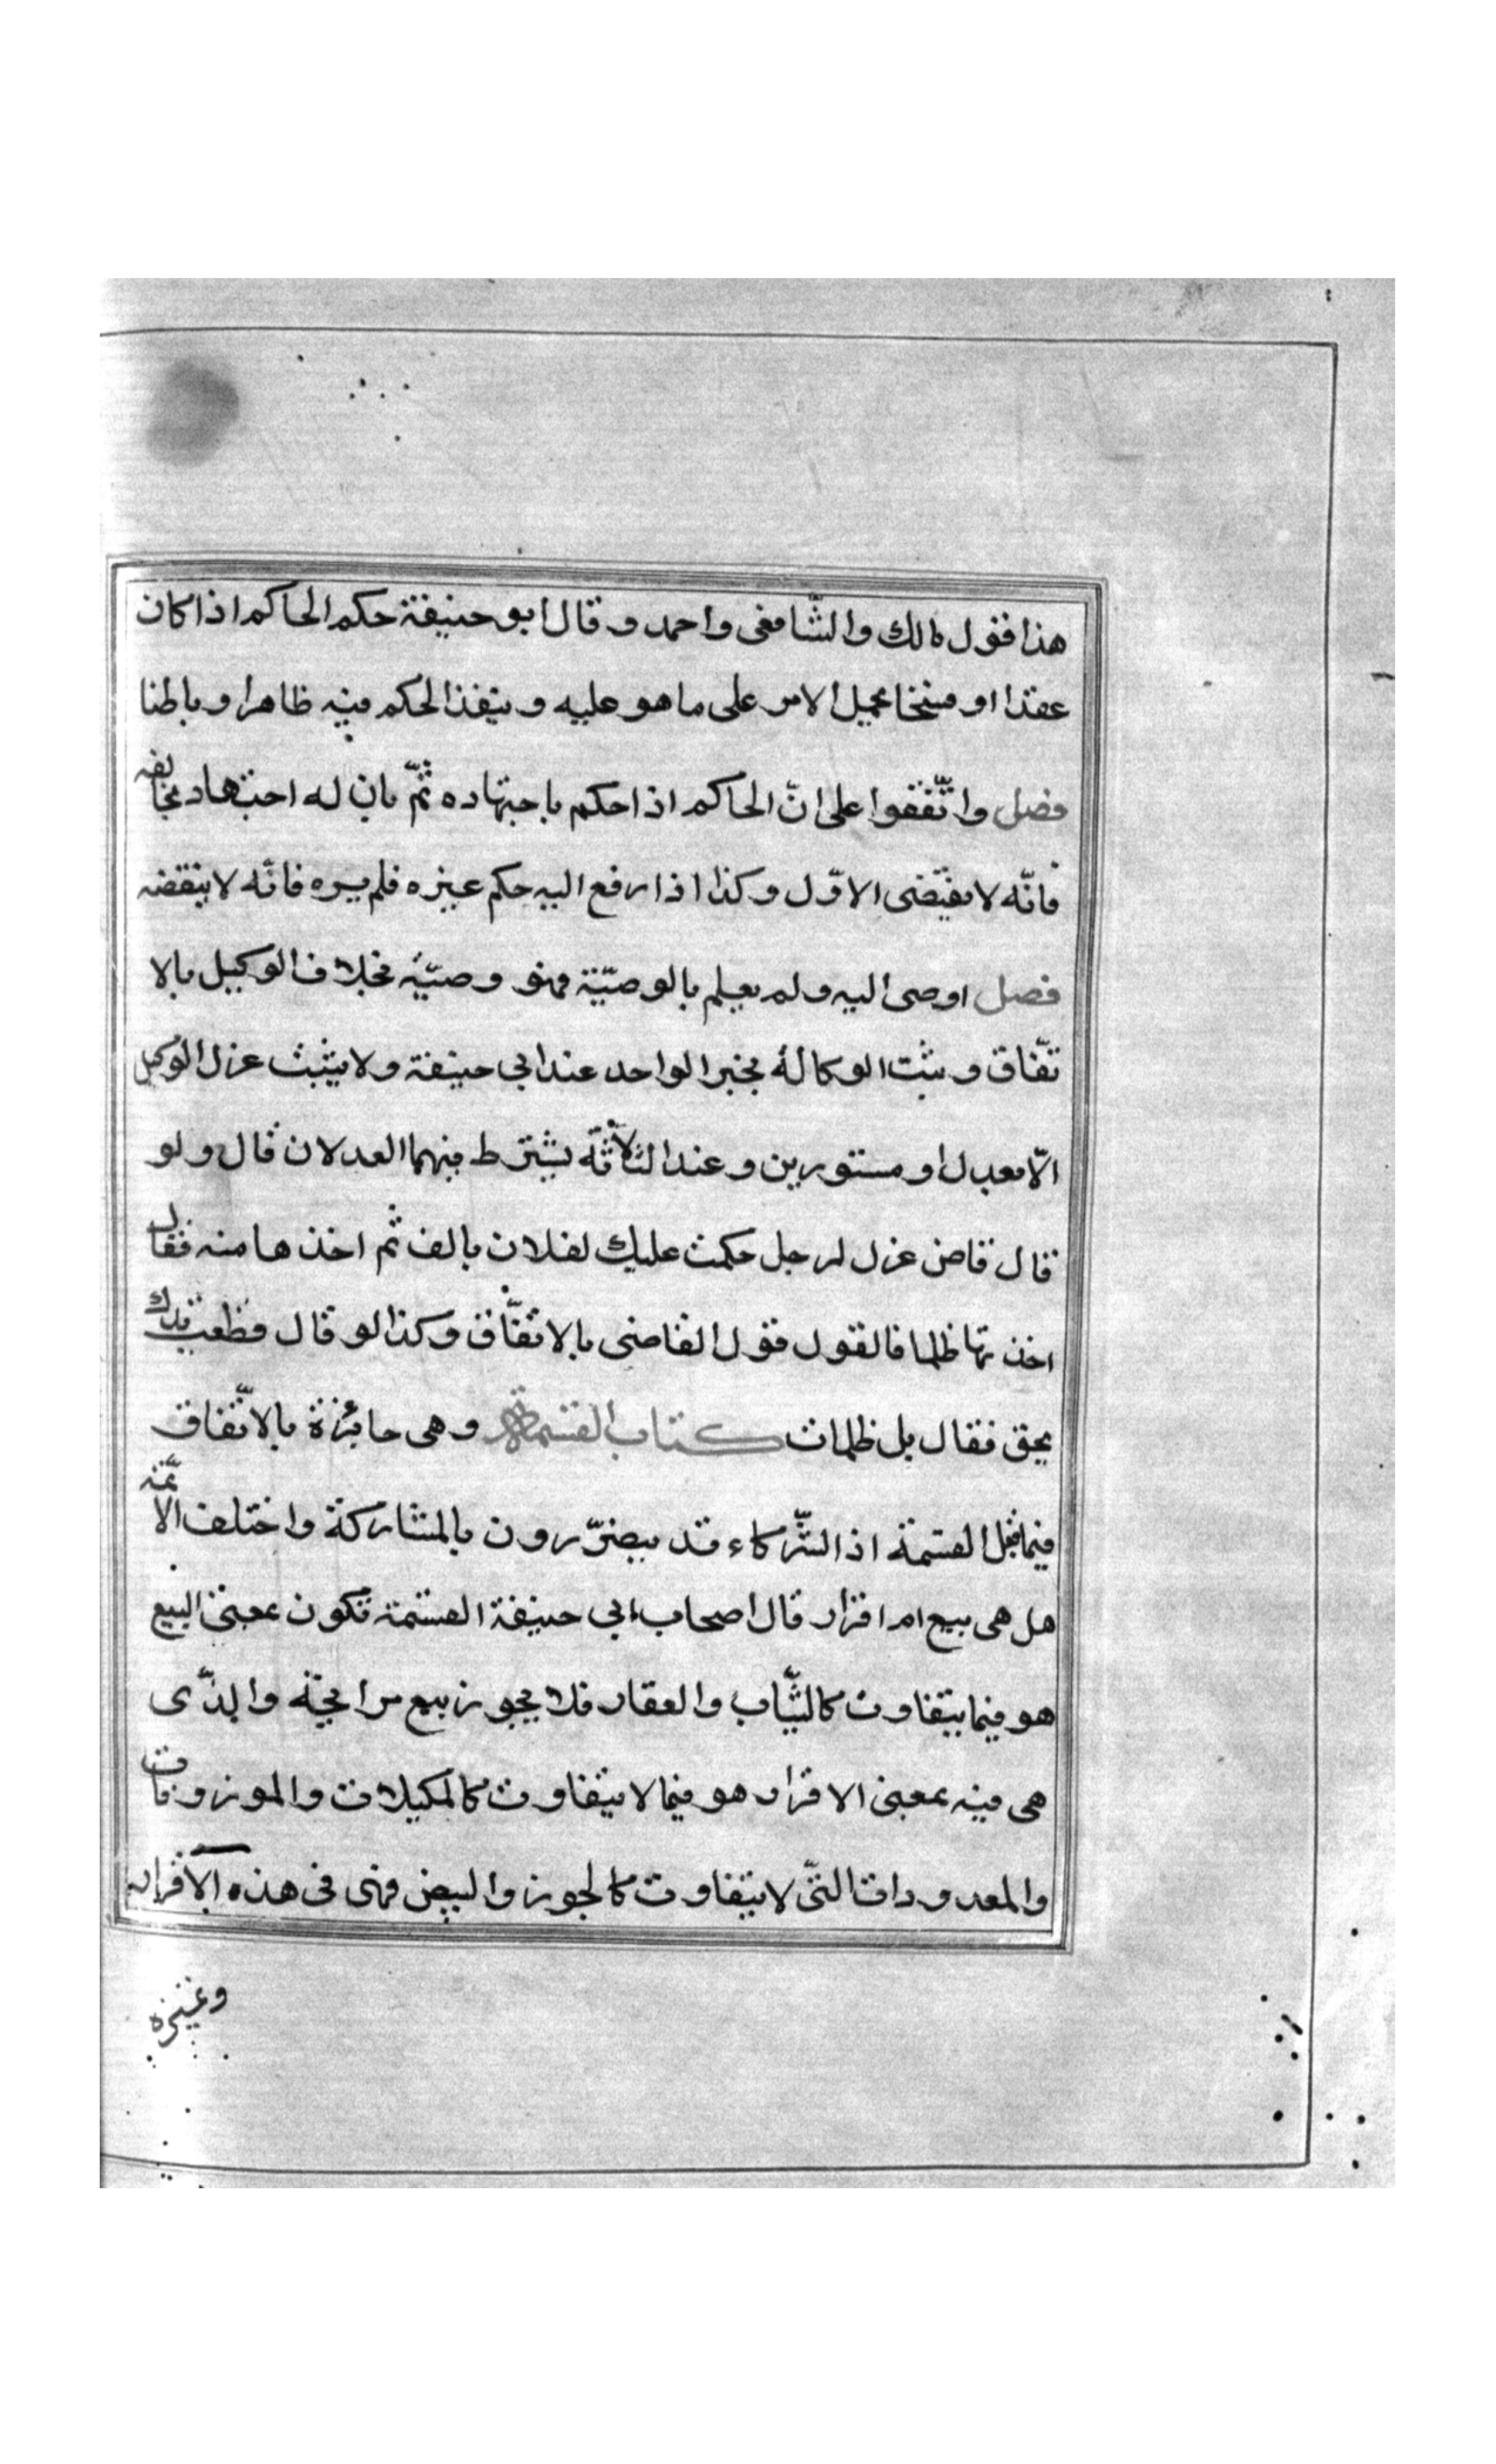 هذا فقول مالك والشّافعى واحمد وقال ابو حنيفة حكم الحاكم اذا كان
عقدا او فسخا يحيل الامر على ما هو عليه وينفذ الحكم فيه ظاهرا وباطنا
فصل واتّفقوا على انّ الحاكم اذا حكم باجتهاده ثمّ بان له اجتهاد يخالفه
فانّه لا ينقض الاوّل وكذا اذا رفع اليه حكم غيره فلم يره فانّه لا ينقضه
فصل اوصى اليه ولم يعلم بالوصيّة فهو وصيّه بخلاف الوكيل بالا
تّفاق ويثبت الوكالة بخبر الواحد عند ابي حنيفة ولا يثبت عزل الوكيل
الّا بعدل او مستورين وعند الثلاثة يشترط فيهما العدلان قال ولو
قال قاض عزل لرجل حكمت عليك لفلان بالف ثم اخذها منه فقال
اخذتها ظلما فالقول قول القاضى بالاتفّاق وكذا لو قال قطعت يدك
بحق فقال بل ظلمات كتاب القسمة وهى جائزة بالاتّفاق
فيما يقبل القسمة اذ الشّركاء قد يضرّرون بالمشاركة واختلف الائمّة
هل هى بيع ام افراز قال اصحاب ابي حنيفة القسمة تكون بمعنى البيع
هو فيما يتفاوت كالثّياب والعقار فلا يجوز بيع مرابحة والذّى
هى فيه بمعنى الافراز هو فيما لا يتفاوت كالمكيلات والموزونات
والمعدودات التّى لا يتفاوت كالجوز والبيض فهى فى هذه الافراز
وغيزه